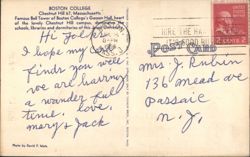 BOSTON COLLEGE
Chestnut Hill 67, Massachusetts
Famous Bell Tower of Boston College's Gasson Hall, heart
of the lovely Chestnut Hill campus,
schools, libraries and dormitories of this
Hi Folks
I hope my card
finds you well
we are having
a wonder ful
time. love,
mary & Jack
Photo by David F.
POST CARD
HIRE THE
Mrs. J. Rubin
136 mead ave
Passaic
N. J.